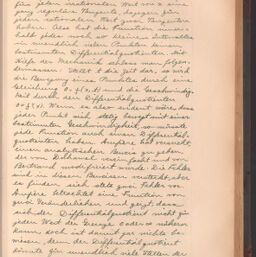 für jeden irrationalen Wert von x eine
ganz reguläre Tangente, dagegen für
jeden rationalen Wert zwei Tangenten
haben. Also hat die Funktion inner-
halb jedes noch so kleinen Intervalles
an unendlich vielen Punkten keinen
bestimmten Differentialquotienten. Mit
Hilfe der Mechanik schloss man folgen-
dermassen: Stellt t die Zeit dar, so wird
die Bewegung eines Punktes durch eine
Gleichung 0 = f(x, t) und die Geschwindig-
keit durch den Differentialquotienten
Wenn es also evident wäre, dass
jeder Punkt sich stetig bewegt mit einer
bestimmten Geschwindigkeit, so müsste
jede Funktion auch einen Differential-
quotienten haben. Ampère hat versucht,
einen analytischen Beweis zu geben,
der von Duhamel vereinfacht und von
Bertrand modifiziert wurde. Die Fehler
sind in diesen Beweisen versteckt, aber
es finden sich stets zwei Fehler vor.
Ampère betrachtet eine Funktion von
zwei Veränderlichen und zeigt, dass
sich der Differentialquotient nicht für
jeden Wert der Grenze 0 oder ∞ nähern
kann, doch ist damit gar nichts be-
wiesen, denn der Differentialquotient
könnte für unendlich viele Stellen der